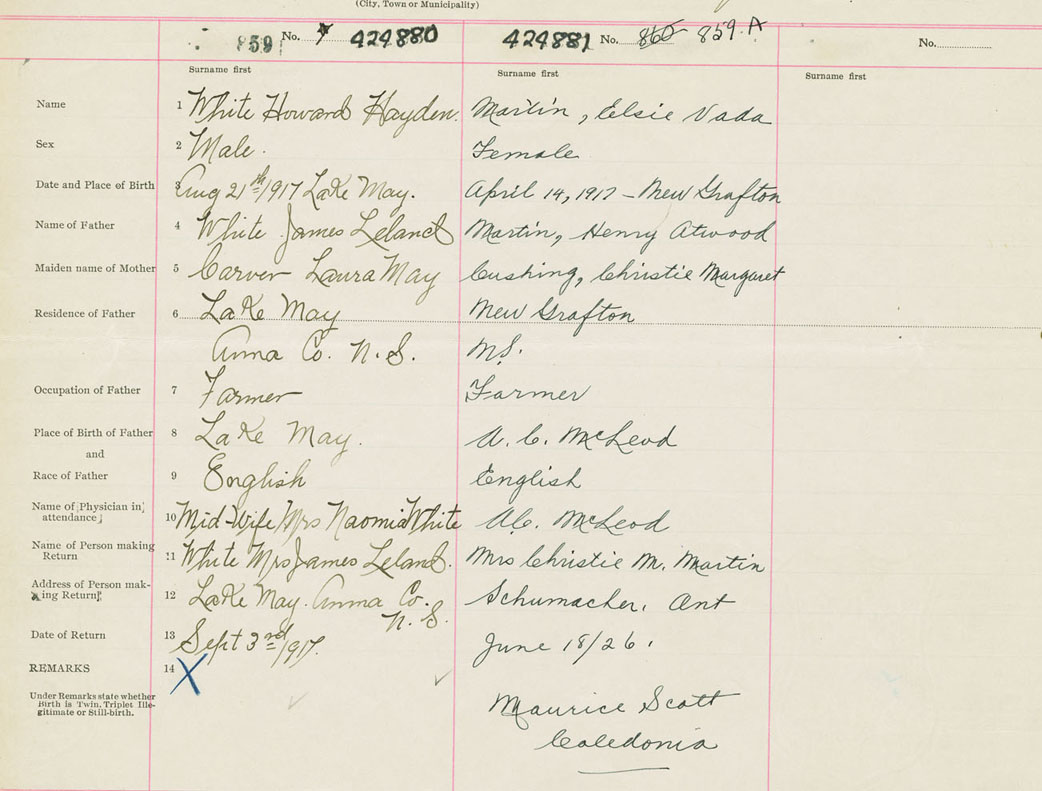 (City, Town or Municipality)
859 No. 424880 424881 No. 860 859.A No.
Surname first Surname first Surname first
Name 1 White Howard Hayden. Martin, Elsie Vada
Sex 2 Male. Female
Date and Place of Birth 3 Aug 21th/1917 Lake May. April 14, 1917 - New Grafton
Name of Father 4 White James Leland Martin, Henry Atwood
Maiden name of Mother 5 Carver Laura May Cushing, Christie Margaret
Residence of Father 6 Lake May New Grafton
Anna Co. N.S. N.S.
Occupation of Father 7 Farmer Farmer
Place of Birth of Father 8 Lake May. A. C. McLeod
and
Race of Father 9 English English
Name of [Physician in]
attendance] 10 Mid-Wife Mrs Naomia White A.C. McLeod
Name of Person making
Return 11 White Mrs James Leland. Mrs Christie M. Martin
Address of Person mak-
ing Return 12 Lake May. Anna Co. Schumacher. Ont
N.S.
Date of Return 13 Sept 3rd/1917. June 18/26.
REMARKS 14 X
Under Remarks state whether
Birth is Twin, Triplet Ille-
gitimate or Still-birth.
Maurice Scott
Caledonia